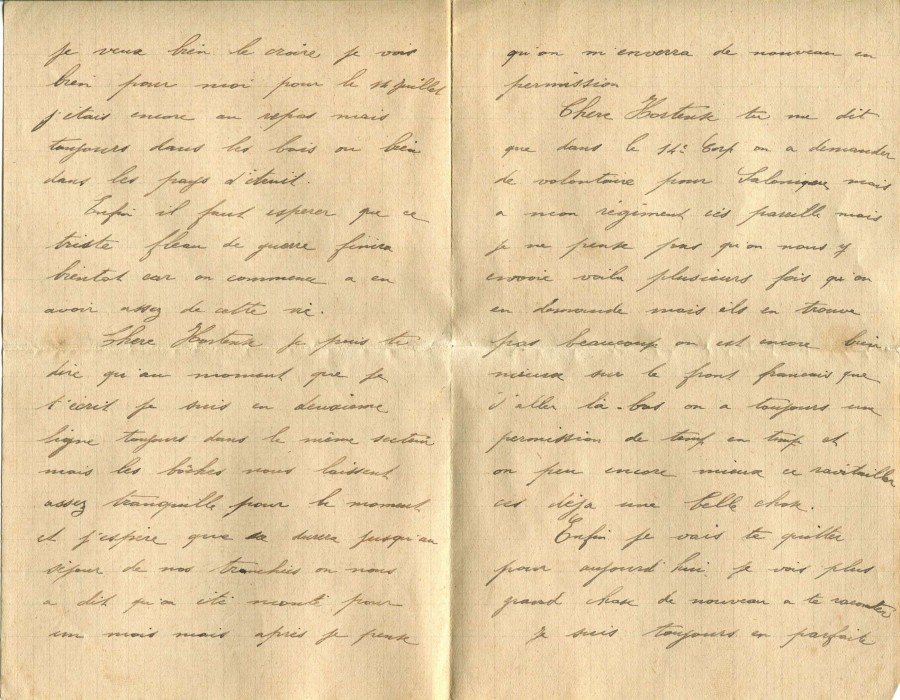 je veux bien le croire je vois
bien pour moi pour le 14 Juillet
j'étais encore au repas mais
toujours dans les bois ou bien
dans les pays d'étruit.
Enfin il faut esperer que ce
triste fleau de guerre finira
bientot car on commence a en
avoir assez de cette vie.
Chere Hortense je puis te
dire qu'au moment que je
t'ecrit je suis en deuxieme
ligne toujours dans le même secteur
mais les bôches nous laissent
assez tranquille pour le moment
et j'espère que sa durera jusqu'au
séjour de nos tranchées on nous
a dit qu'on été monté pour
un mois mais après je pense
qu'on m'enverra de nouveau en
permission
Chere Hortense tu me dit
que dans le 14e Corp on a demander
de volontaire pour Salonique mais
a mon régiment cés pareille mais
je ne pense pas qu'on nous y
envoie voila plusieurs fois qu'on
en demande mais ils en trouve
pas beaucoup on est encore bien
mieux sur le front francais que
d'aller là-bas on a toujours une
permission de temp en temp et
on peu encore mieux ce ravitailler
ces déja une belle chose.
Enfin je vais te quitter
pour aujourd'hui je vois plus
grand chose de nouveau a te raconter
Je suis toujours en parfaite